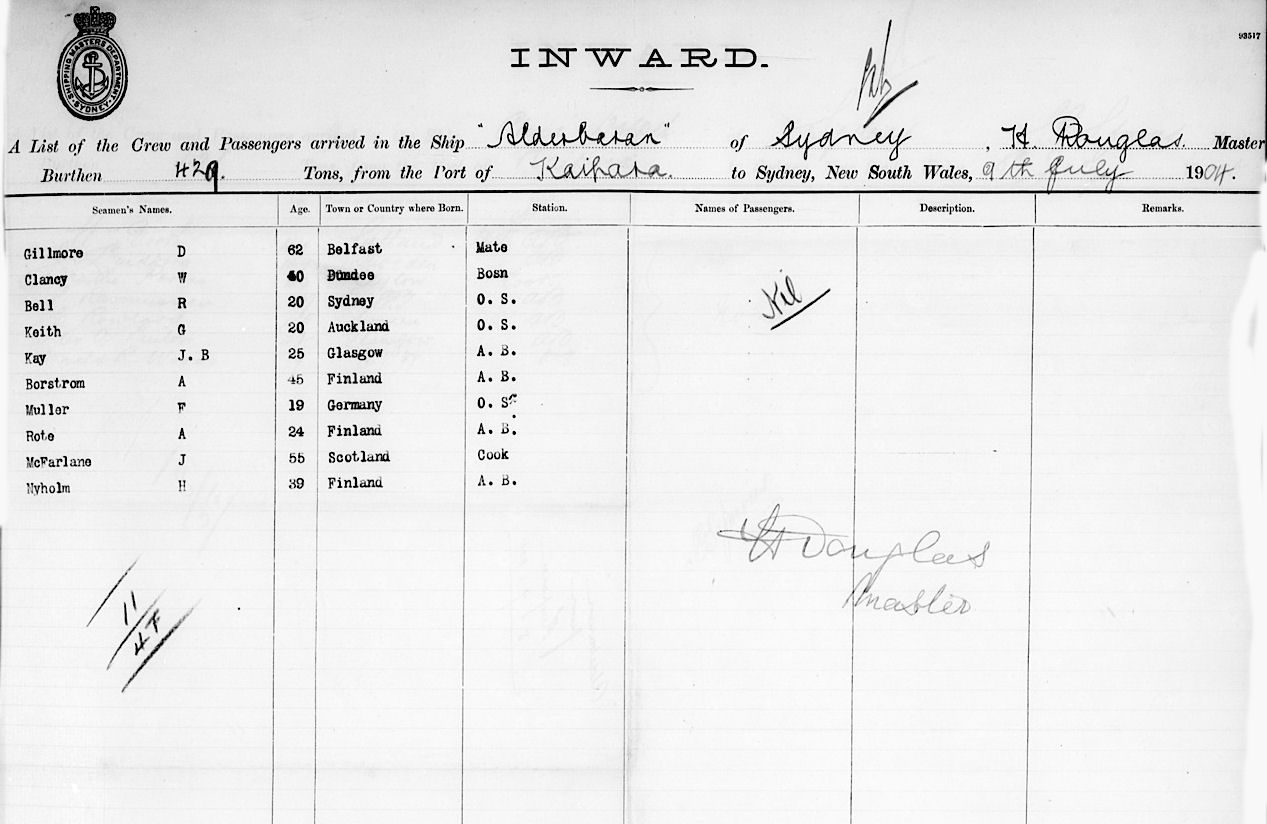 93517
SHIPPING MASTERS DEPARTMENT
SYDNEY
INWARD.
A List of the Crew and Passengers arrived in the Ship "Alderbaran" of Sydney, H. Douglas. Master
Burthen 429. Tons, from the Port of Kaipara. to Sydney, New South Wales, 9th July 1904.
Seamen's Names. Age. Town or Country where Born. Station. Names of Passengers. Description. Remarks.
Gillmore D 62 Belfast Mate
Clancy W 40 Dundee Bosn
Bell R 20 Sydney O. S.
Nil
Keith G 20 Auckland O. S.
Kay J. B 25 Glasgow A. B.
Borstrom A 45 Finland A. B.
Muller F 19 Germany O. S.
Rote A 24 Finland A. B.
McFarlane J 55 Scotland Cook
Nyholm H 39 Finland A. B.
H Douglas
Master
11
4 F